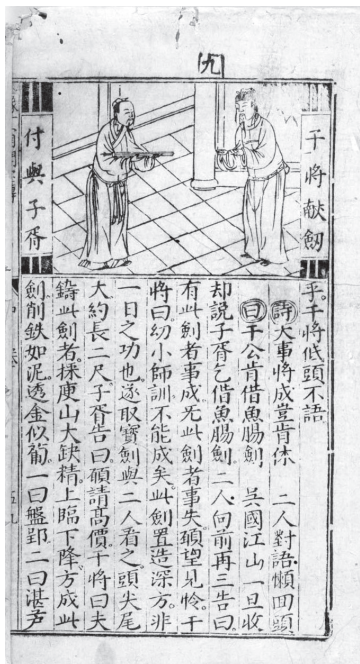 九
干將献劒
付與子胥
乎干將低頭不語
詩大事將成豈肯休　二人對語懶回頭
曰干公肯借魚腸劍　吳國江山一旦收
却説子胥乞借魚腸劍二人向前再三告曰
有此劍者事成死此劍者事失頋望見怜干
將曰幼小師訓不能成矣此劍置造深方非
一日之功也遂取寶劍與二人看之頭尖尾
大約長二尺子胥告曰頋請高價干將曰夫
鑄此劍者採庾山大鈌精上臨下降方成此
劍削鉄如泥透金似萄一曰盤郢二曰湛芦